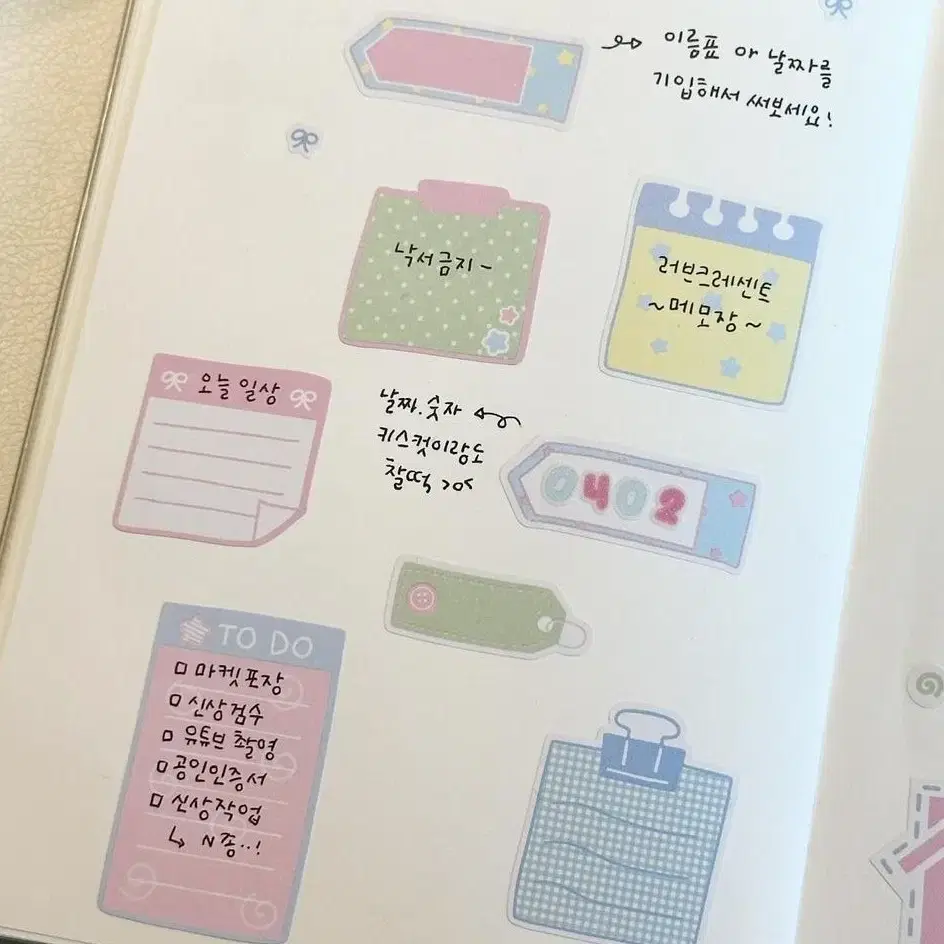 이름표 or 날짜를
기입해서 써보세요!
낙서금지~
러브크레센트
~메모장~
오늘 일상
날짜.숫자
키스컷이랑도
찰떡 >o<
0402
TO DO
□ 마켓포장
□ 신상검수
□ 유튜브 촬영
□ 공인인증서
□ 신상작업
↳ N종..!